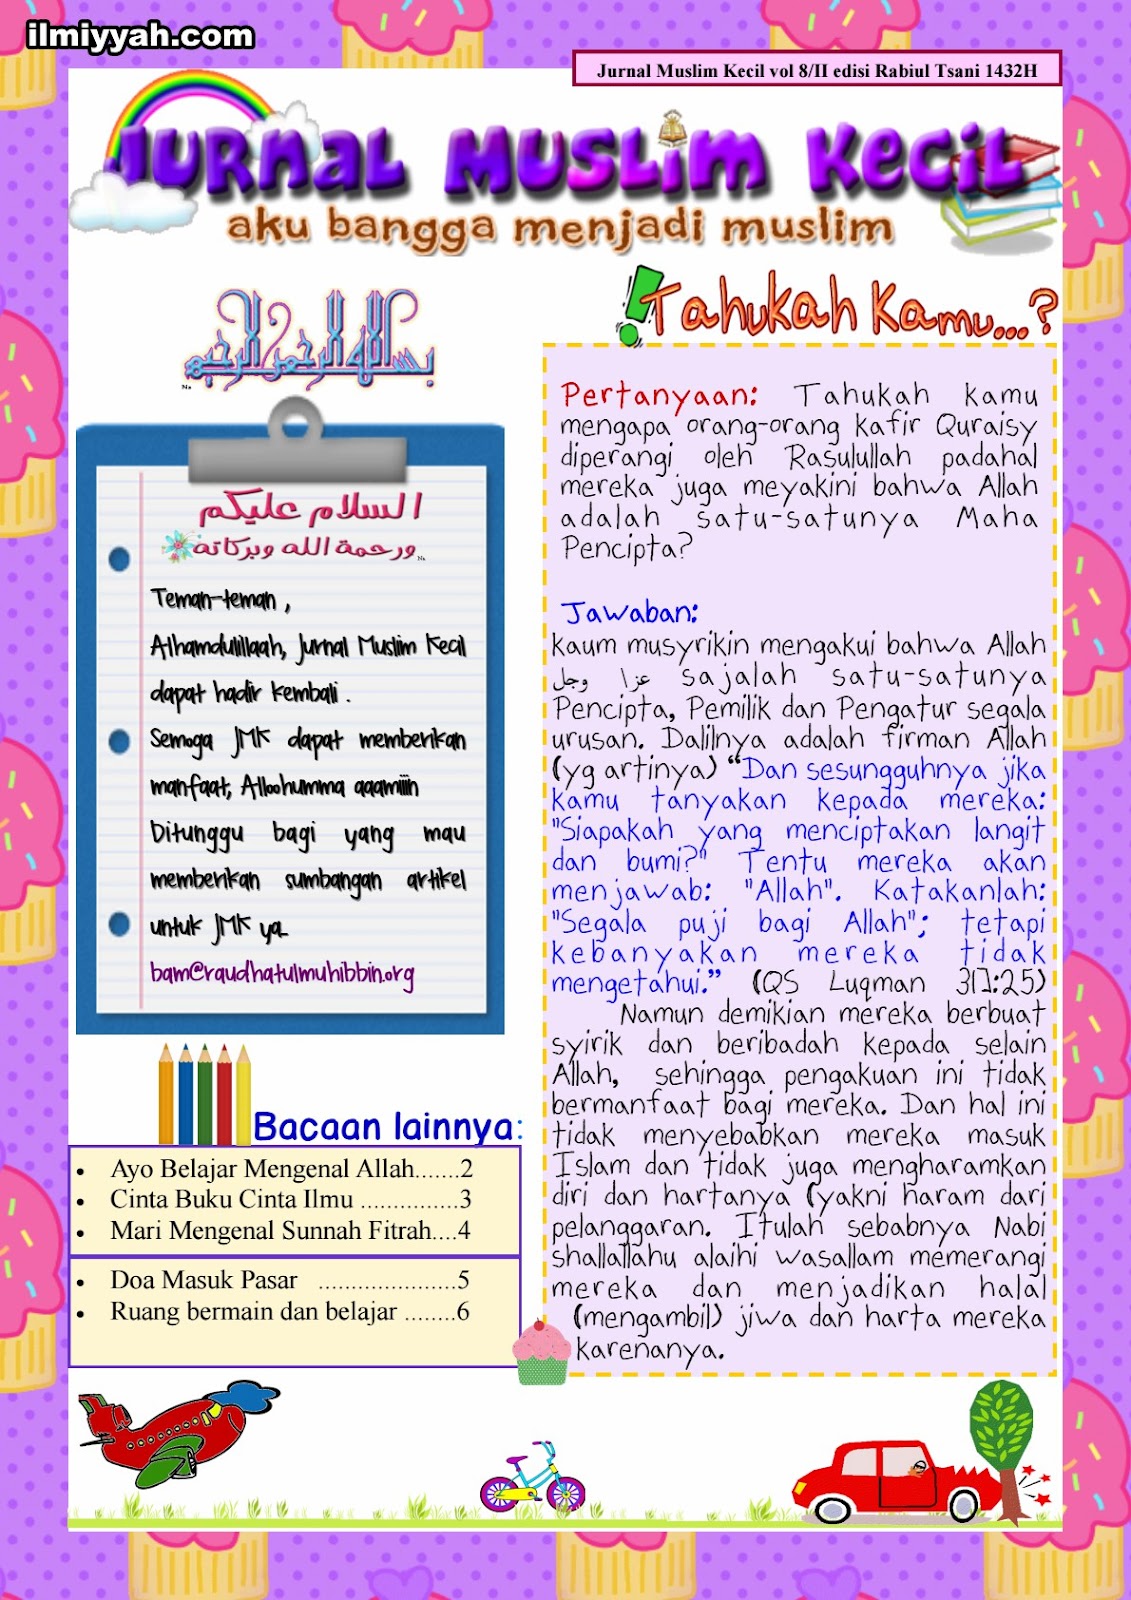 ilmiyyah.com
Jurnal Muslim Kecil vol 8/II edisi Rabiul Tsani 1432H
Jurnal Muslim Kecil
aku bangga menjadi muslim
بسم الله الرحمن الرحيم
السلام عليكم
ورحمة الله وبركاته
Teman-teman ,
Alhamdulillaah, Jurnal Muslim Kecil
dapat hadir kembali .
Semoga JMK dapat memberikan
manfaat, Alloohumma aaamiiin
Ditunggu bagi yang mau
memberikan sumbangan artikel
untuk JMK ya...
bam@raudhatulmuhibbin.org
Bacaan lainnya:
• Ayo Belajar Mengenal Allah.......2
• Cinta Buku Cinta Ilmu ...............3
• Mari Mengenal Sunnah Fitrah....4
• Doa Masuk Pasar .....................5
• Ruang bermain dan belajar ........6
! Tahukah Kamu...?
Pertanyaan: Tahukah kamu
mengapa orang-orang kafir Quraisy
diperangi oleh Rasulullah padahal
mereka juga meyakini bahwa Allah
adalah satu-satunya Maha
Pencipta?
Jawaban:
kaum musyrikin mengakui bahwa Allah
عزا وجل sajalah satu-satunya
Pencipta, Pemilik dan Pengatur segala
urusan. Dalilnya adalah firman Allah
(yg artinya) “Dan sesungguhnya jika
kamu tanyakan kepada mereka:
"Siapakah yang menciptakan langit
dan bumi?" Tentu mereka akan
menjawab: "Allah". Katakanlah:
"Segala puji bagi Allah"; tetapi
kebanyakan mereka tidak
mengetahui.” (QS Luqman 31]:25)
Namun demikian mereka berbuat
syirik dan beribadah kepada selain
Allah, sehingga pengakuan ini tidak
bermanfaat bagi mereka. Dan hal ini
tidak menyebabkan mereka masuk
Islam dan tidak juga mengharamkan
diri dan hartanya (yakni haram dari
pelanggaran. Itulah sebabnya Nabi
shallallahu alaihi wasallam memerangi
mereka dan menjadikan halal
(mengambil) jiwa dan harta mereka
karenanya.